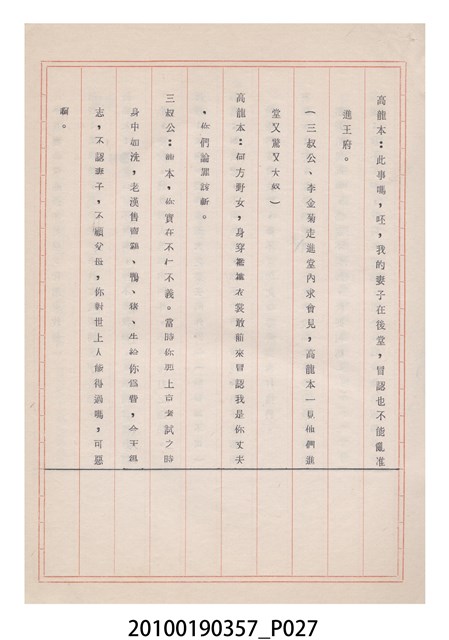 高龍本：此事嗎，呸，我的妻子在後堂，冒認也不能亂准
進王府。
（三叔公、李金菊走進堂內求會見，高龍本一見他們進
堂又驚又大怒）
高龍本：何方野女，身穿襤褸衣裳敢前來冒認我是你丈夫
，你們論罪該斬。
三叔公：龍本，你實在不仁不義。當時你要上京考試之時
身中如洗，老漢售賣雞、鴨、豬、牛給你為費，今天
志，不認妻子，不顧父母，你對世上人能得過嗎，可惡
啊。
20100190357_P027